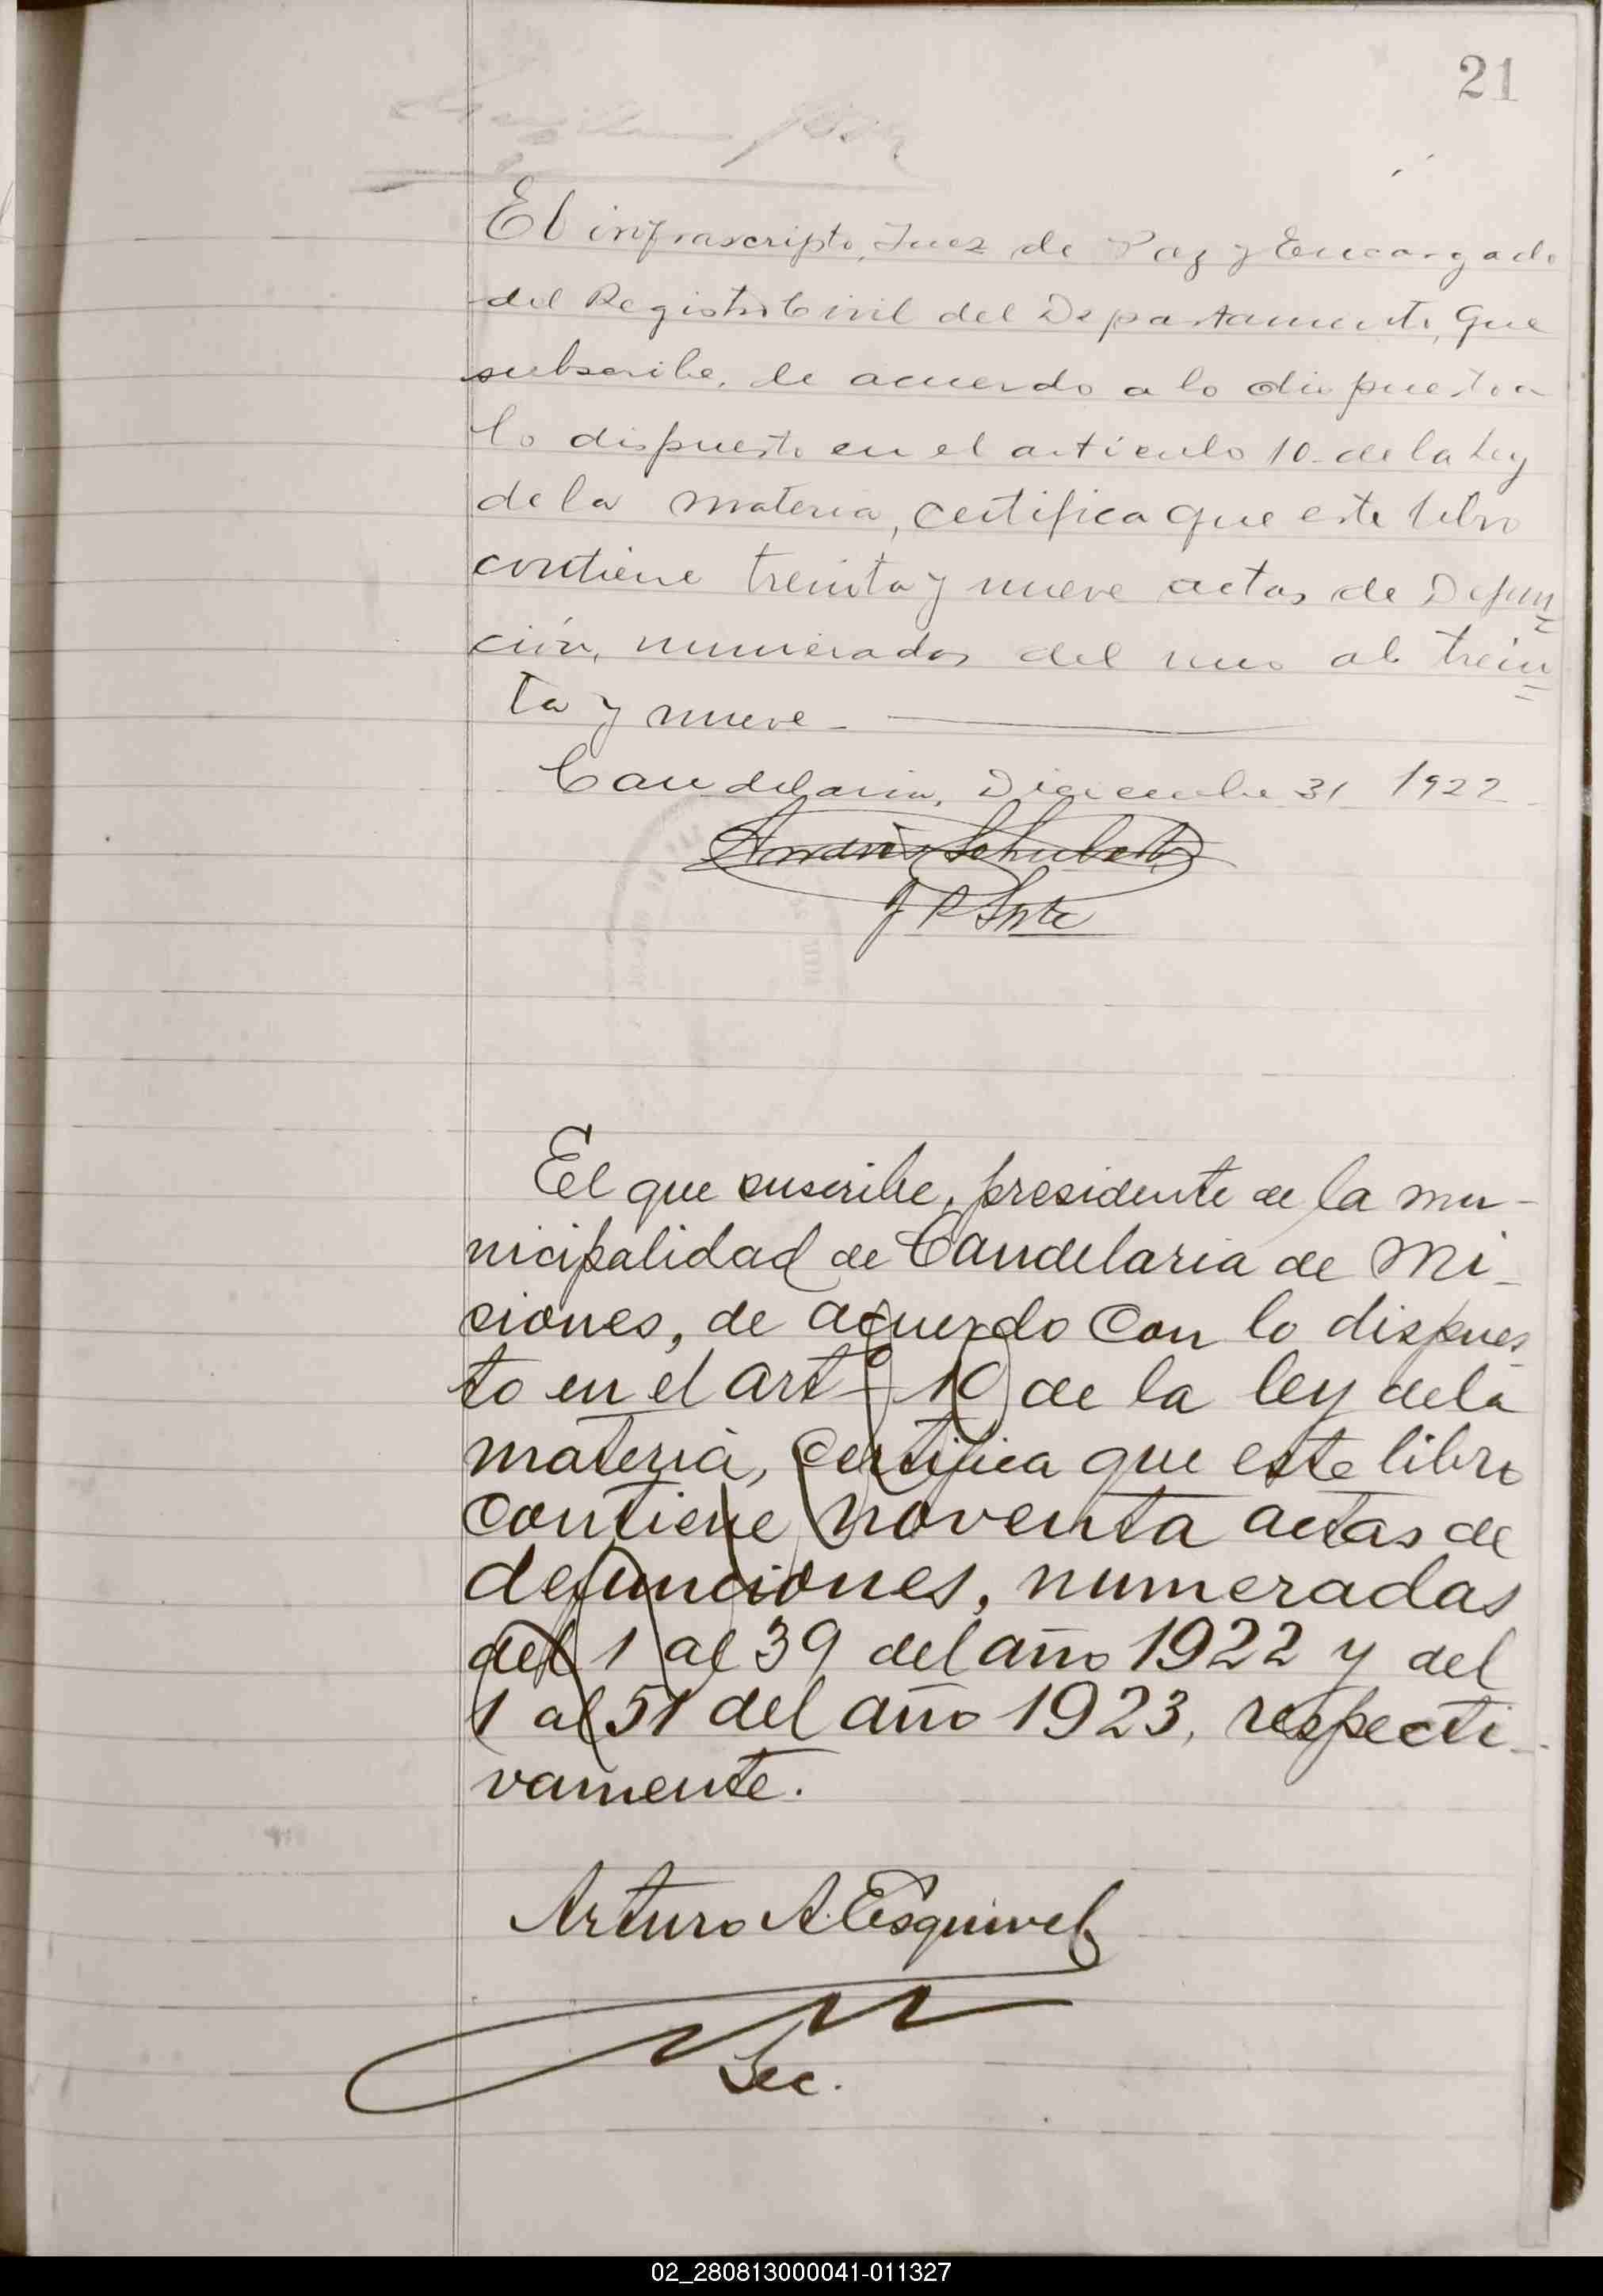 21
El infrascripto, Juez de Paz y Encargado
del Registro Civil del Departamento, que
subscribe, de acuerdo a lo dispuesto a
lo dispuesto en el artículo 10 de la Ley
de la materia, certifica que este libro
contiene treinta y nueve actas de Defun=
ción, numerados del uno al trein=
ta y nueve
Candelaria, Diciembre 31 1922
Andrés Schubert
J P Ste
El que suscribe, presidente de la mu-
nicipalidad de Candelaria de Mi-
siones, de acuerdo con lo dispues-
to en el artº 10 de la ley de la
materia, certifica que este libro
contiene noventa actas de
defunciones, numeradas
del 1 al 39 del año 1922 y del
1 al 51 del año 1923, respecti-
vamente.
Arturo A. Esquivel
Sec.
02_280813000041-011327